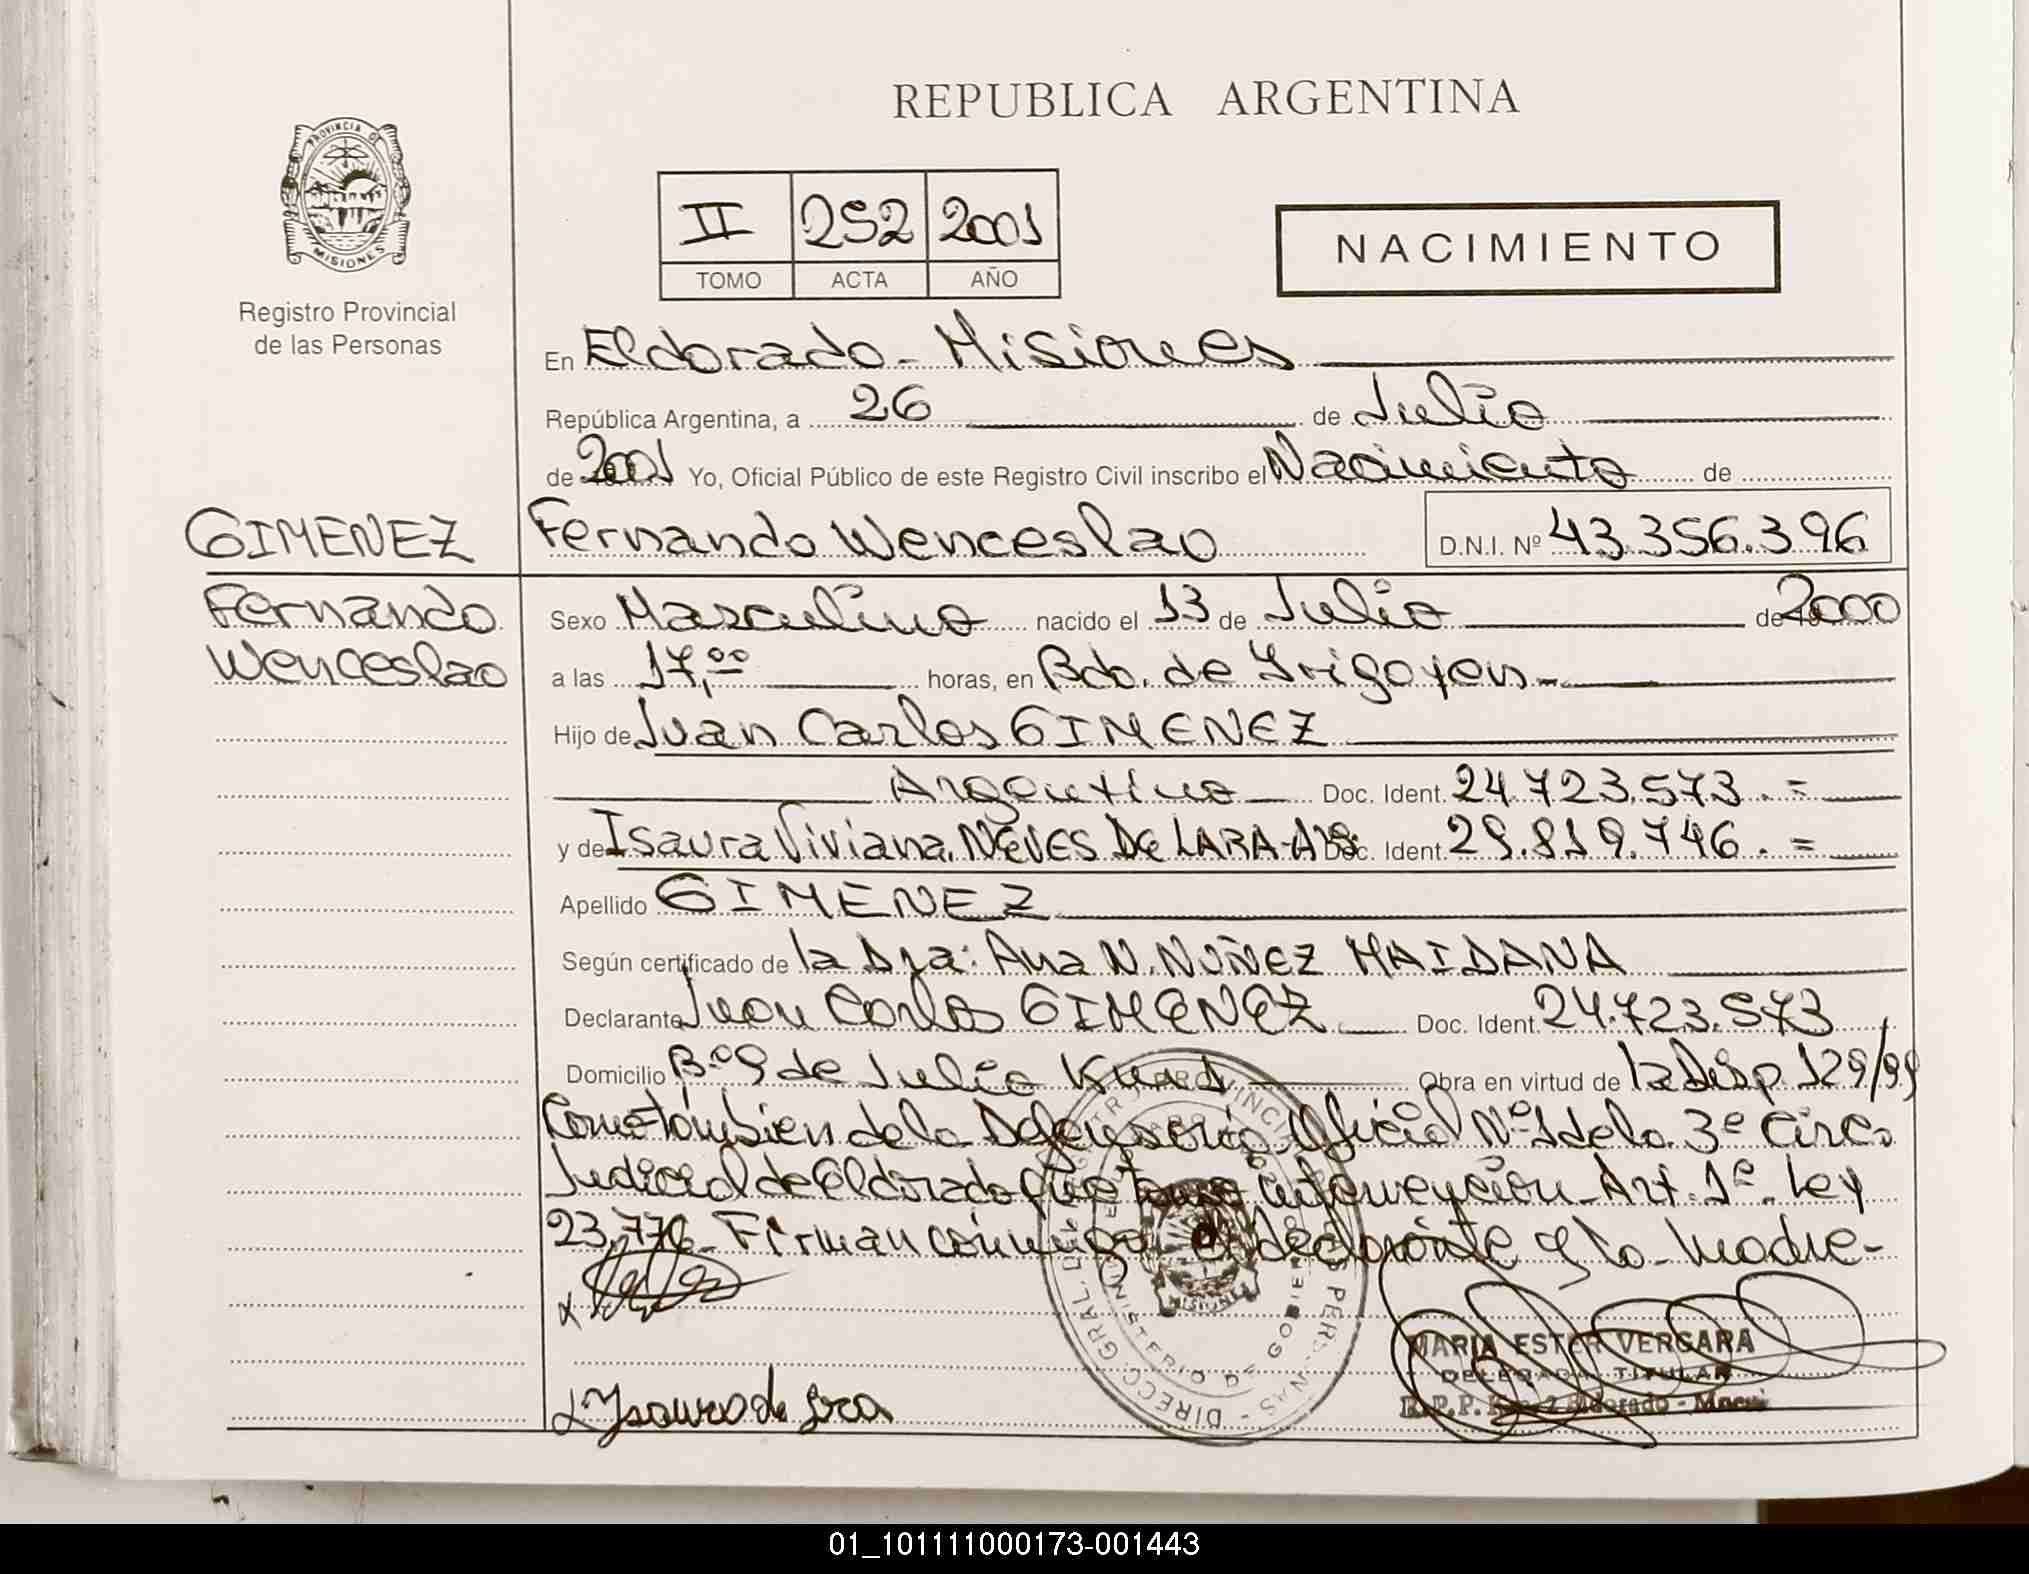 REPUBLICA ARGENTINA
PROVINCIA DE
MISIONES
Registro Provincial
de las Personas
II 252 2001
TOMO ACTA AÑO
NACIMIENTO
En Eldorado - Misiones
República Argentina, a 26 de Julio
de 2001 Yo, Oficial Público de este Registro Civil inscribo el Nacimiento de
GIMENEZ
Fernando
Wenceslao
Fernando Wenceslao D.N.I. Nº 43.356.396
Sexo Masculino nacido el 13 de Julio de 2000
a las 17,00 horas, en Bdo. de Yrigoyen -
Hijo de Juan Carlos GIMENEZ
Argentino Doc. Ident. 24.723.573. =
y de Isaura Viviana NEVES DE LARA - Doc. Ident. 29.819.746. =
Apellido GIMENEZ
Según certificado de la Dra: Ana N. NUÑEZ MAIDANA
Declarante Juan Carlos GIMENEZ Doc. Ident. 24.723.573
Domicilio Bº 9 de Julio Km 1 Obra en virtud de la Disp. 129/99
Como también de la Defensoria Oficial Nº 1 de la 3º Circ.
Judicial de Eldorado que tomó intervención - Art. 1º Ley
23.776 - Firman conmigo el declarante y la madre -
MARIA ESTER VERGARA
DELEGADA TITULAR
R.P.P. Eldorado -
Ysaura de Lara
01_101111000173-001443